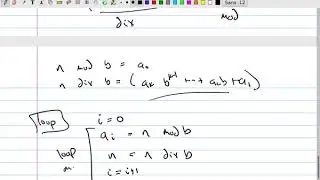 Sans 12
div mod
n mod b = a₀
n div b = (aₖ bᵏ⁻¹ + ... + a₂b + a₁)
loop i = 0
aᵢ = n mod b
loop n = n div b
i = i+1